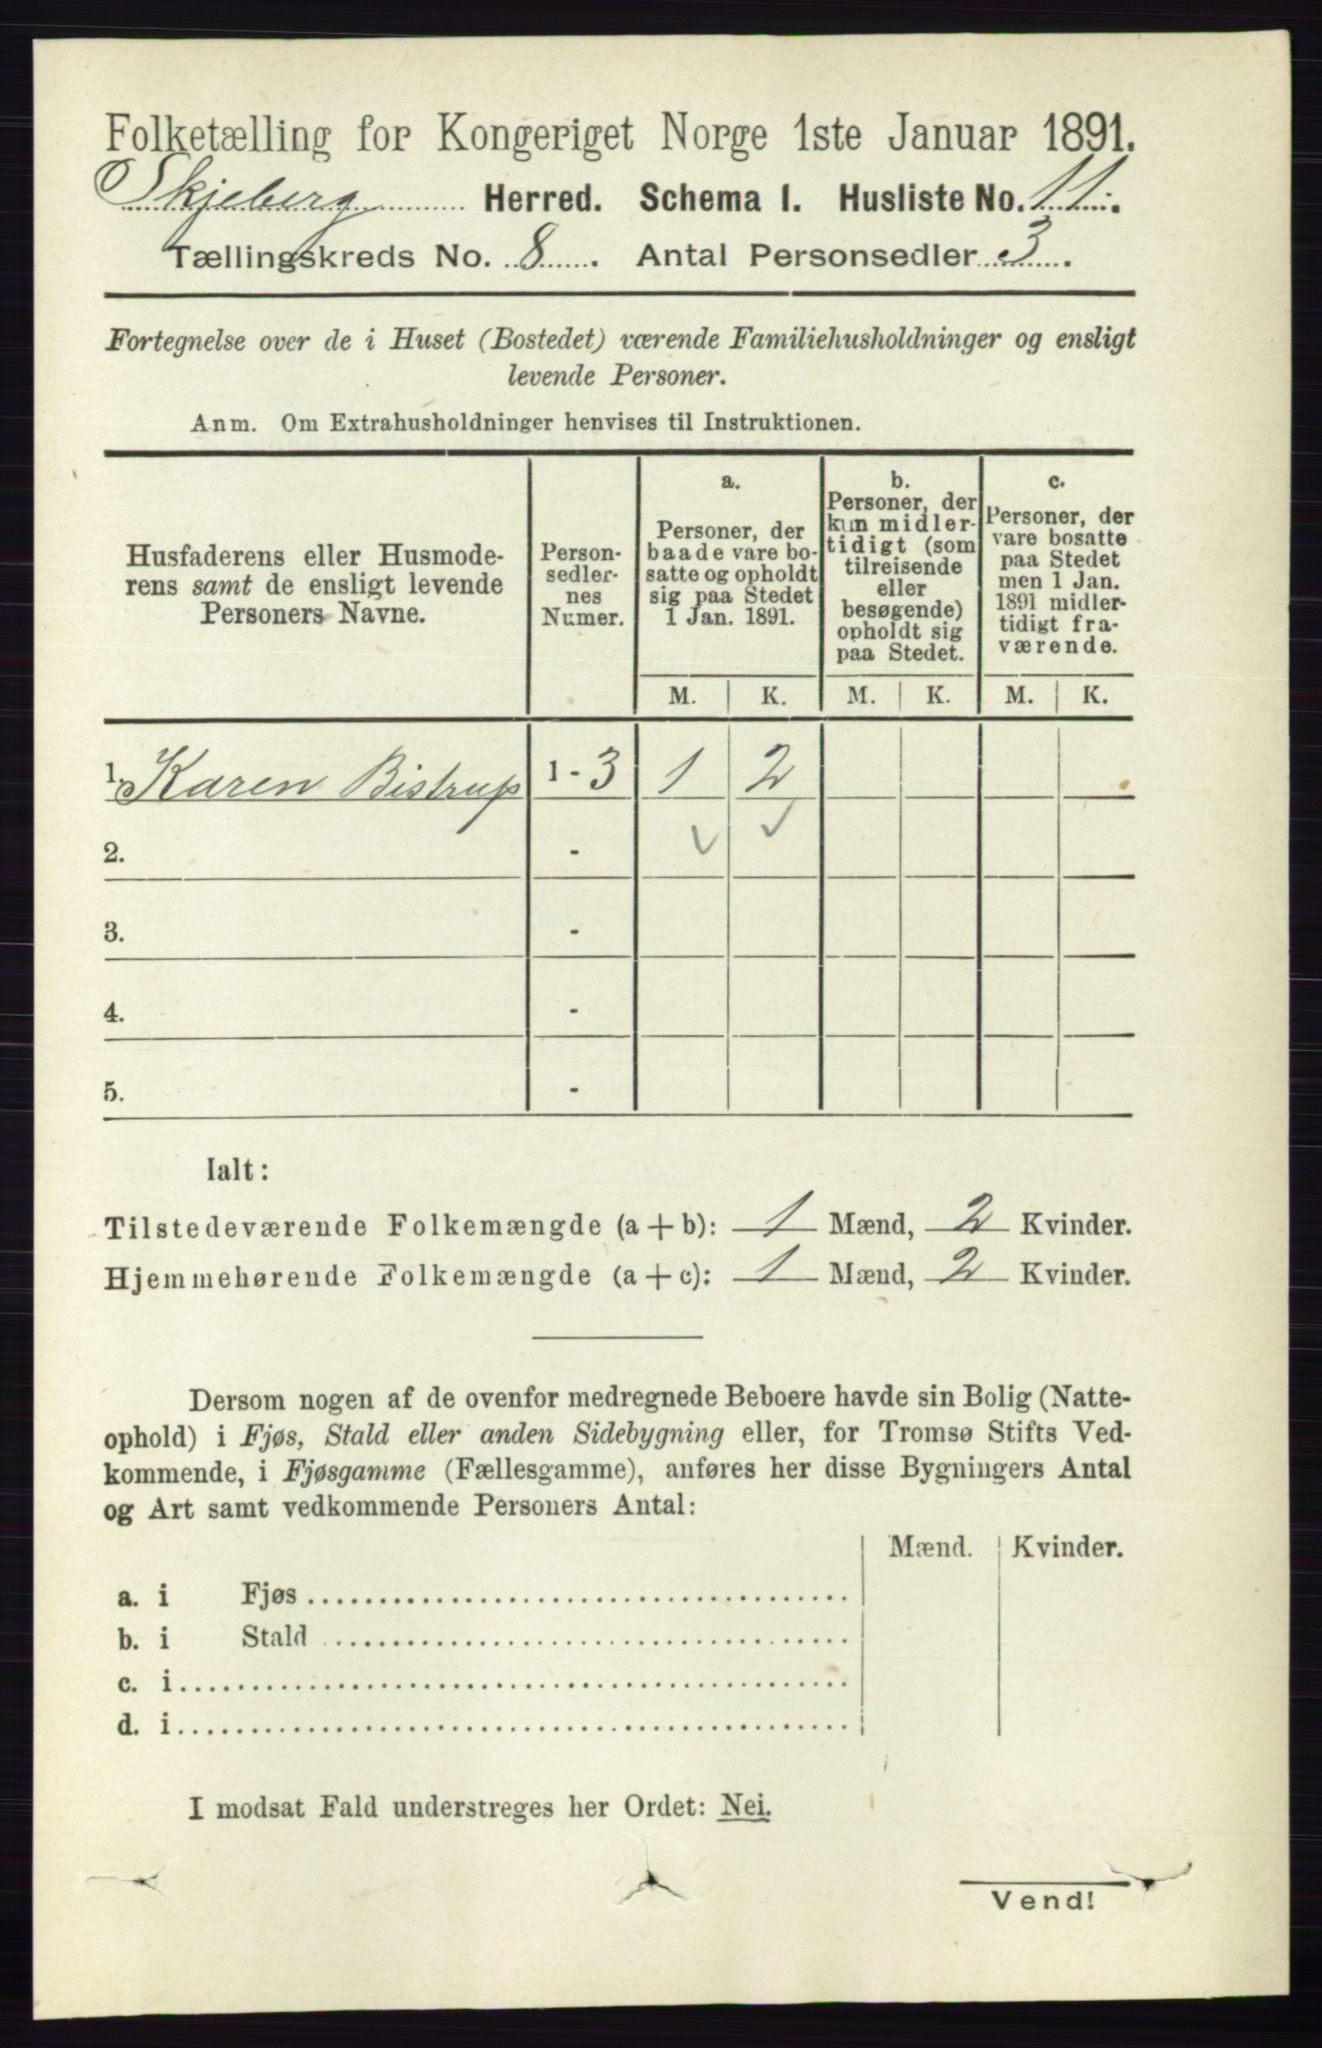 Folketælling for Kongeriget Norge 1ste Januar 1891.
Skjeberg Herred. Schema I. Husliste No. 11.
Tællingskreds No. 8. Antal Personsedler 3.
Fortegnelse over de i Huset (Bostedet) værende Familiehusholdninger og ensligt
levende Personer.
Anm. Om Extrahusholdninger henvises til Instruktionen.
Husfaderens eller Husmode-
rens samt de ensligt levende
Personers Navne.
Person-
sedler-
nes
Numer.
a.
Personer, der
baade vare bo-
satte og opholdt
sig paa Stedet
1 Jan. 1891.
b.
Personer, der
kun midler-
tidigt (som
tilreisende
eller
besøgende)
opholdt sig
paa Stedet.
c.
Personer, der
vare bosatte
paa Stedet
men 1 Jan.
1891 midler-
tidigt fra-
værende.
M. K. M. K. M. K.
1. Karen Bistrup 1 - 3 1 2
2. - ✓ ✓
3. -
4. -
5. -
Ialt:
Tilstedeværende Folkemængde (a + b): 1 Mænd, 2 Kvinder.
Hjemmehørende Folkemængde (a + c): 1 Mænd, 2 Kvinder.
Dersom nogen af de ovenfor medregnede Beboere havde sin Bolig (Natte-
ophold) i Fjøs, Stald eller anden Sidebygning eller, for Tromsø Stifts Ved-
kommende, i Fjøsgamme (Fællesgamme), anføres her disse Bygningers Antal
og Art samt vedkommende Personers Antal:
Mænd. Kvinder.
a. i Fjøs
b. i Stald
c. i
d. i
I modsat Fald understreges her Ordet: Nei.
Vend!